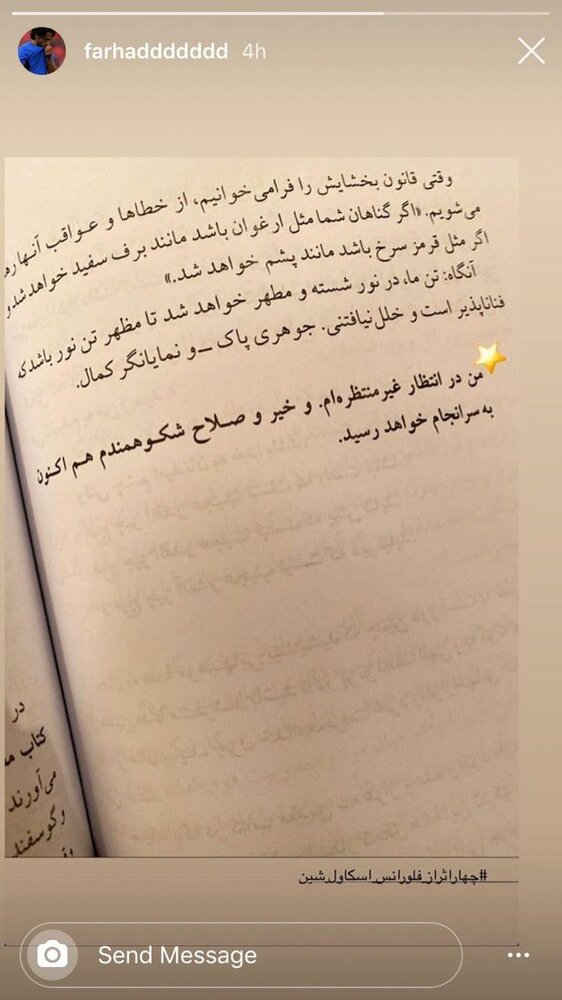 farhaddddddd 4h
وقتی قانون بخشایش را فرامی‌خوانیم، از خطاها و عواقب آنها
می‌شویم. «اگر گناهان شما مثل ارغوان باشد مانند برف سفید خواهد شد و
اگر مثل قرمز سرخ باشد مانند پشم خواهد شد.»
آنگاه: تن ما، در نور شسته و مطهر خواهد شد تا مظهر تن نور باشد که
فناناپذیر است و خلل‌نیافتنی. جوهری پاک ـ و نمایانگر کمال.
من در انتظار غیرمنتظره‌ام. و خیر و صلاح شکوهمندم هم اکنون
به سرانجام خواهد رسید.
در
کتاب
می‌آورند
وگوسفند
#چهاراثراز_فلورانس_اسکاول_شین
Send Message